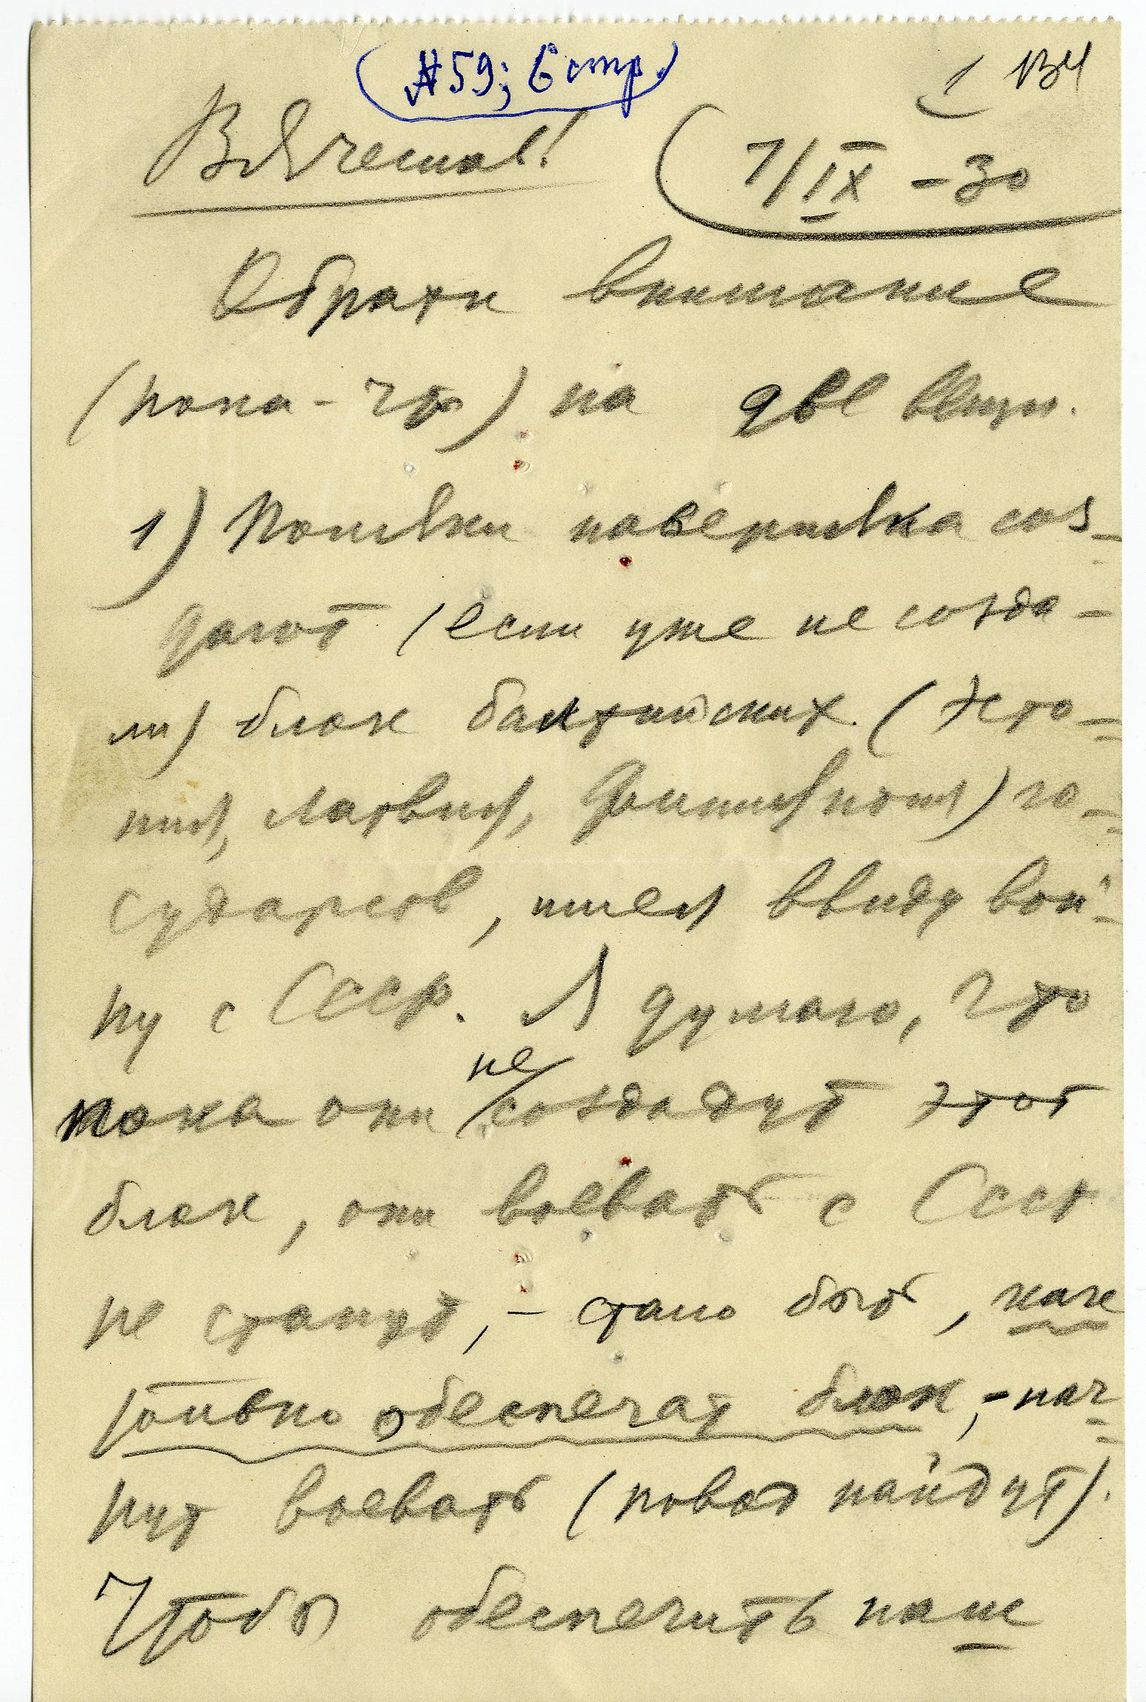 (№59; 6 стр.)
1 134
Вячеслав!
(1/IX – 30
Обрати внимание
(пока-что) на две вещи.
1) Поляки наверняка соз-
дают (если уже не созда-
ли) блок балтийских (Эсто-
ния, Латвия, Финляндия) го-
сударств, имея ввиду вой-
ну с СССР. Я думаю, что
пока они не создадут этот
блок, они воевать с СССР
не станут, – стало быть, как
только обеспечат блок, – нач-
нут воевать (повод найдут).
Чтобы обеспечить наш